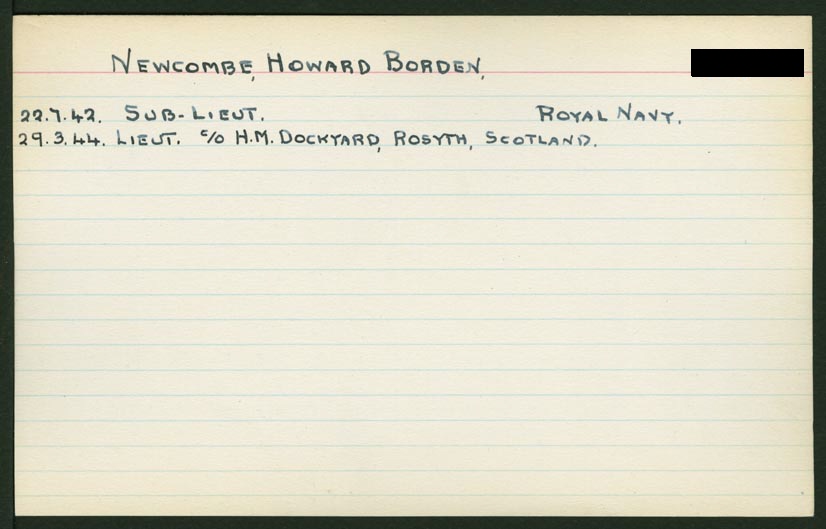 NEWCOMBE, HOWARD BORDEN,
22.7.42. SUB-LIEUT. ROYAL NAVY.
29.3.44. LIEUT. c/o H.M. DOCKYARD, ROSYTH, SCOTLAND.